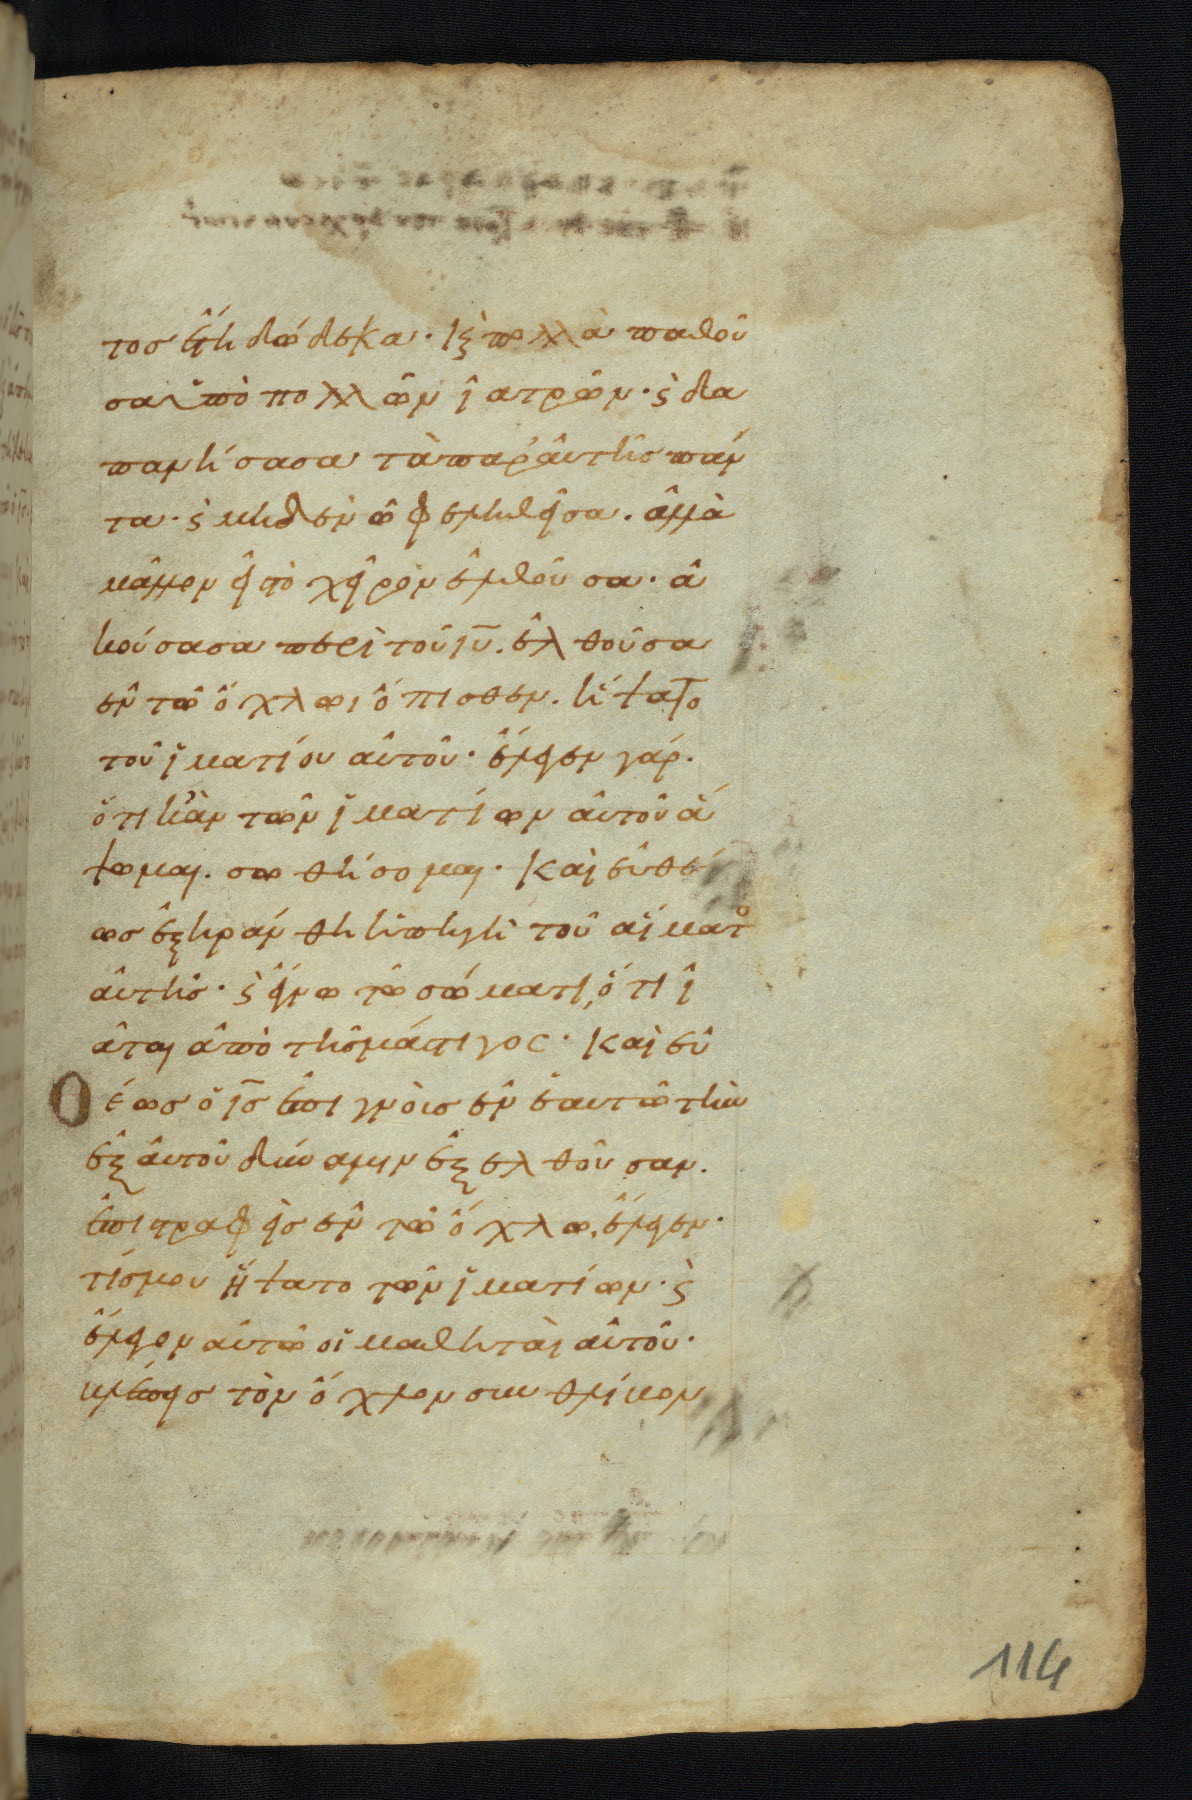 τοσ ἔτη δώδεκα· κ πολλὰ παθοῦ
σα ὑπὸ πολλῶν ἰατρῶν· ϗ δα
πανήσασα τὰ παρ' ἀυτῆσ πάν
τα· ϗ μηδὲν ὠφεληθεῖσα. ἀλλὰ
μᾶλλον εἰσ τὸ χεῖρον ἐλθοῦσα· ἀ
κούσασα περὶ τοῦ ιυ̅. ἐλθοῦσα
ἐν τῶ ὄχλωι ὄπισθεν. ἥψατο
τοῦ ἱματίου αὐτοῦ· ἔλεγεν γάρ.
ὅτι κἂν τῶν ἱματίων ἀυτοῦ ἅ
ψωμαι. σωθήσομαι· Καὶ εὐθέ
ωσ ἐξηράνθη ἡ πηγὴ τοῦ αἵματο
ἀυτῆσ· ϗ ἔγνω τῶ σώματι, ὅτι ἴ
αται ἀπὸ τῆσ μάστιγος· Καὶ εὐ
θέωσ ὁ ισ̅ ἐπιγνοὺσ ἐν ἑαυτῶ τὴν
ἐξ ἀυτοῦ δύναμιν ἐξελθοῦσαν.
ἐπιστραφεὶσ ἐν τῶ ὄχλω, ἔλεγεν·
τίσ μου ἥψατο τῶν ἱματίων· ϗ
ἔλεγον αὐτῶ οἱ μαθηταὶ αὐτοῦ·
βλέπεισ τὸν ὄχλον συνθλίβον
114